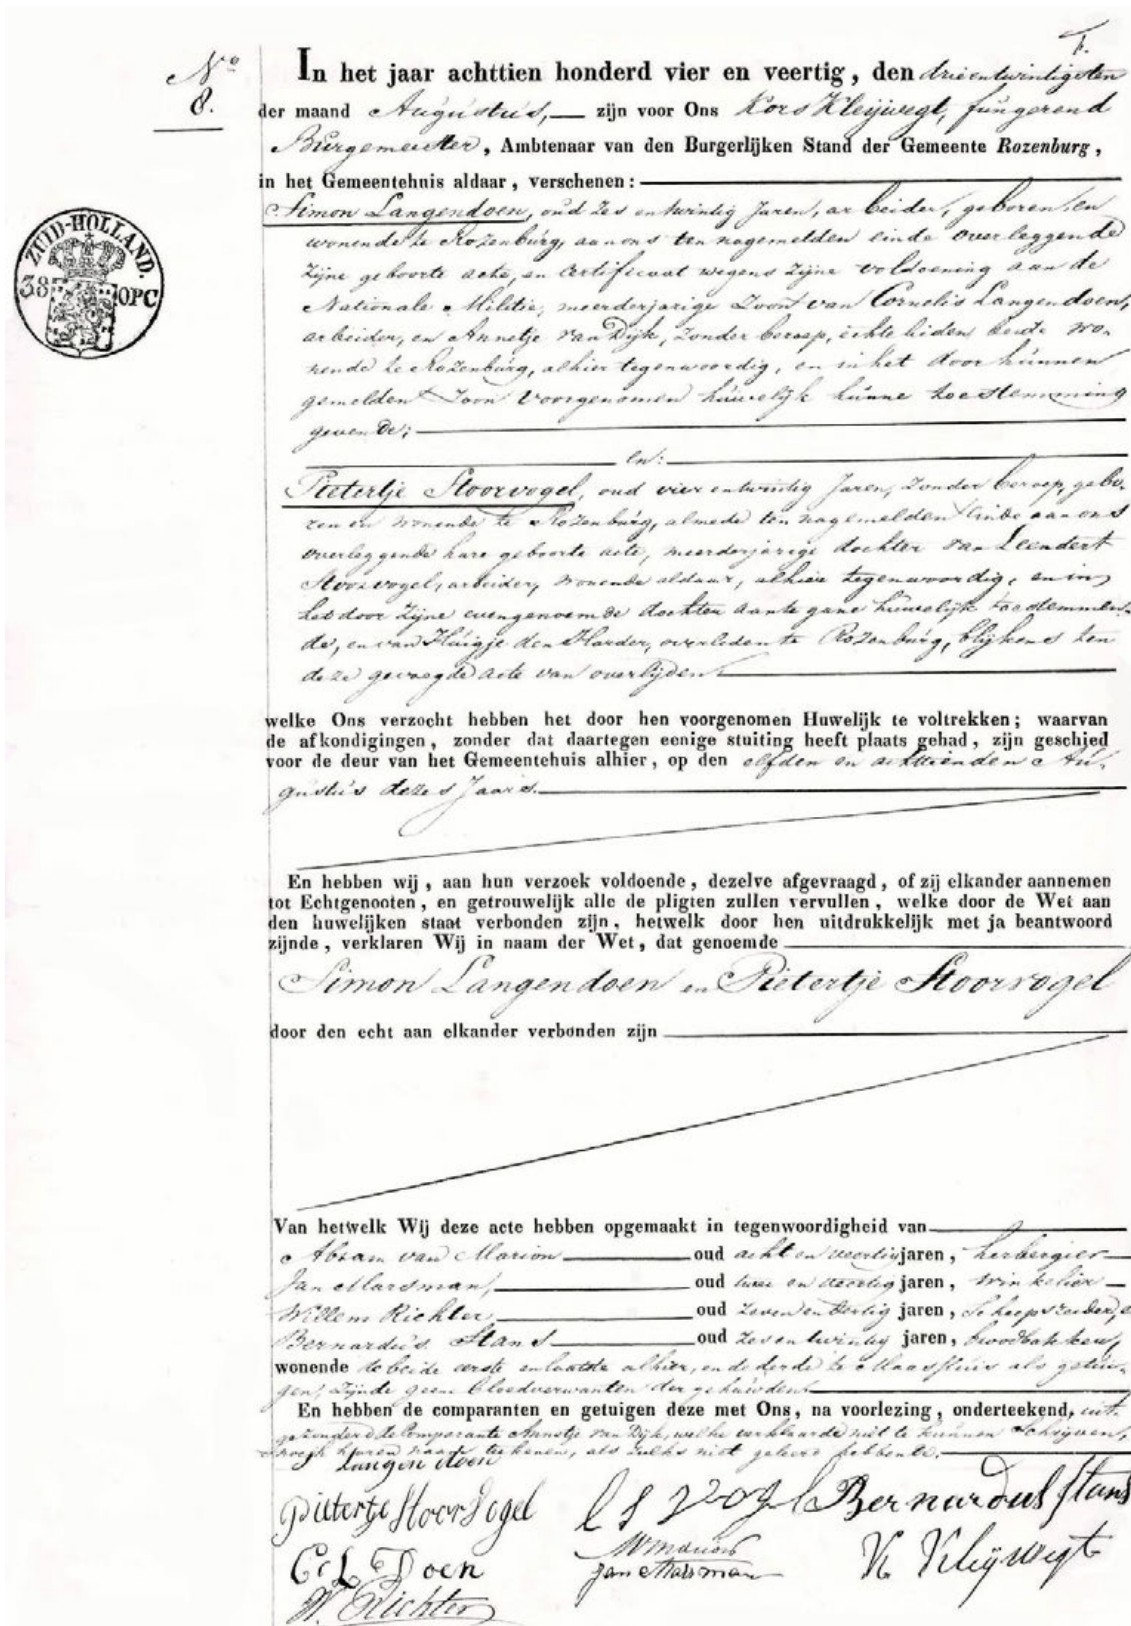 F.
No
8.
In het jaar achttien honderd vier en veertig, den drieentwintigsten
der maand Augustus, zijn voor Ons Kors Kleijwegt, fungerend
Burgemeester, Ambtenaar van den Burgerlijken Stand der Gemeente Rozenburg,
in het Gemeentehuis aldaar, verschenen:
ZUID-HOLLAND.
38 OPC
Simon Langendoen, oud zes en twintig Jaren, arbeider, geboren en
wonende te Rozenburg, aan ons ten nagemelden einde overleggende
zijne geboorte acte, en Certificaat wegens zijne voldoening aan de
Nationale Militie, meerderjarige Zoon van Cornelis Langendoen,
arbeider, en Annetje van Dijk, zonder beroep, echte lieden beide wo-
nende te Rozenburg, alhier tegenwoordig, en in het door hunnen
gemelden Zoon voorgenomen huwelijk hunne toestemming
gevende;
en:
Pietertje Stoorvogel, oud vier entwintig Jaren, zonder beroep, gebo-
ren en wonende te Rozenburg, almede ten nagemelden einde aan ons
overleggende hare geboorte acte, meerderjarige dochter van Leendert
Stoorvogel, arbeider, wonende aldaar, alhier tegenwoordig, en in
het door zijne evengenoemde dochter aante gane huwelijk toestemmen-
de, en van Huigje den Harder, overleden te Rozenburg, blijkens ten
deze gevoegde acte van overlijden.
welke Ons verzocht hebben het door hen voorgenomen Huwelijk te voltrekken; waarvan
de afkondigingen, zonder dat daartegen eenige stuiting heeft plaats gehad, zijn geschied
voor de deur van het Gemeentehuis alhier, op den elfden en achttienden Au-
gustus dezes Jaars.
En hebben wij, aan hun verzoek voldoende, dezelve afgevraagd, of zij elkander aannemen
tot Echtgenooten, en getrouwelijk alle de pligten zullen vervullen, welke door de Wet aan
den huwelijken staat verbonden zijn, hetwelk door hen uitdrukkelijk met ja beantwoord
zijnde, verklaren Wij in naam der Wet, dat genoemde
Simon Langendoen en Pietertje Stoorvogel
door den echt aan elkander verbonden zijn
Van hetwelk Wij deze acte hebben opgemaakt in tegenwoordigheid van
Abram van Marion oud acht en veertig jaren, herbergier
Jan Marsman, oud twee en veertig jaren, winkelier
Willem Richter oud zeven en dertig jaren, Scheepsreeder, en
Bernardus Stans oud zes en twintig jaren, broodbakker,
wonende de beide eerste en laatste alhier, en de derde te Maassluis als getui-
gen, zijnde geene bloedverwanten der gehuwden.
En hebben de comparanten en getuigen deze met Ons, na voorlezing, onderteekend, uit-
gezonderd de Comparante Annetje van Dijk, welke verklaarde niet te kunnen Schrijven,
noch haren naam teekenen, als zulks niet geleerd hebbende.
Langen doen
Pietertje Stoorvogel
l S Vogel
Bernardus Stans
C L Doen
Jan Marsman
K Kleijwegt
W. Richter